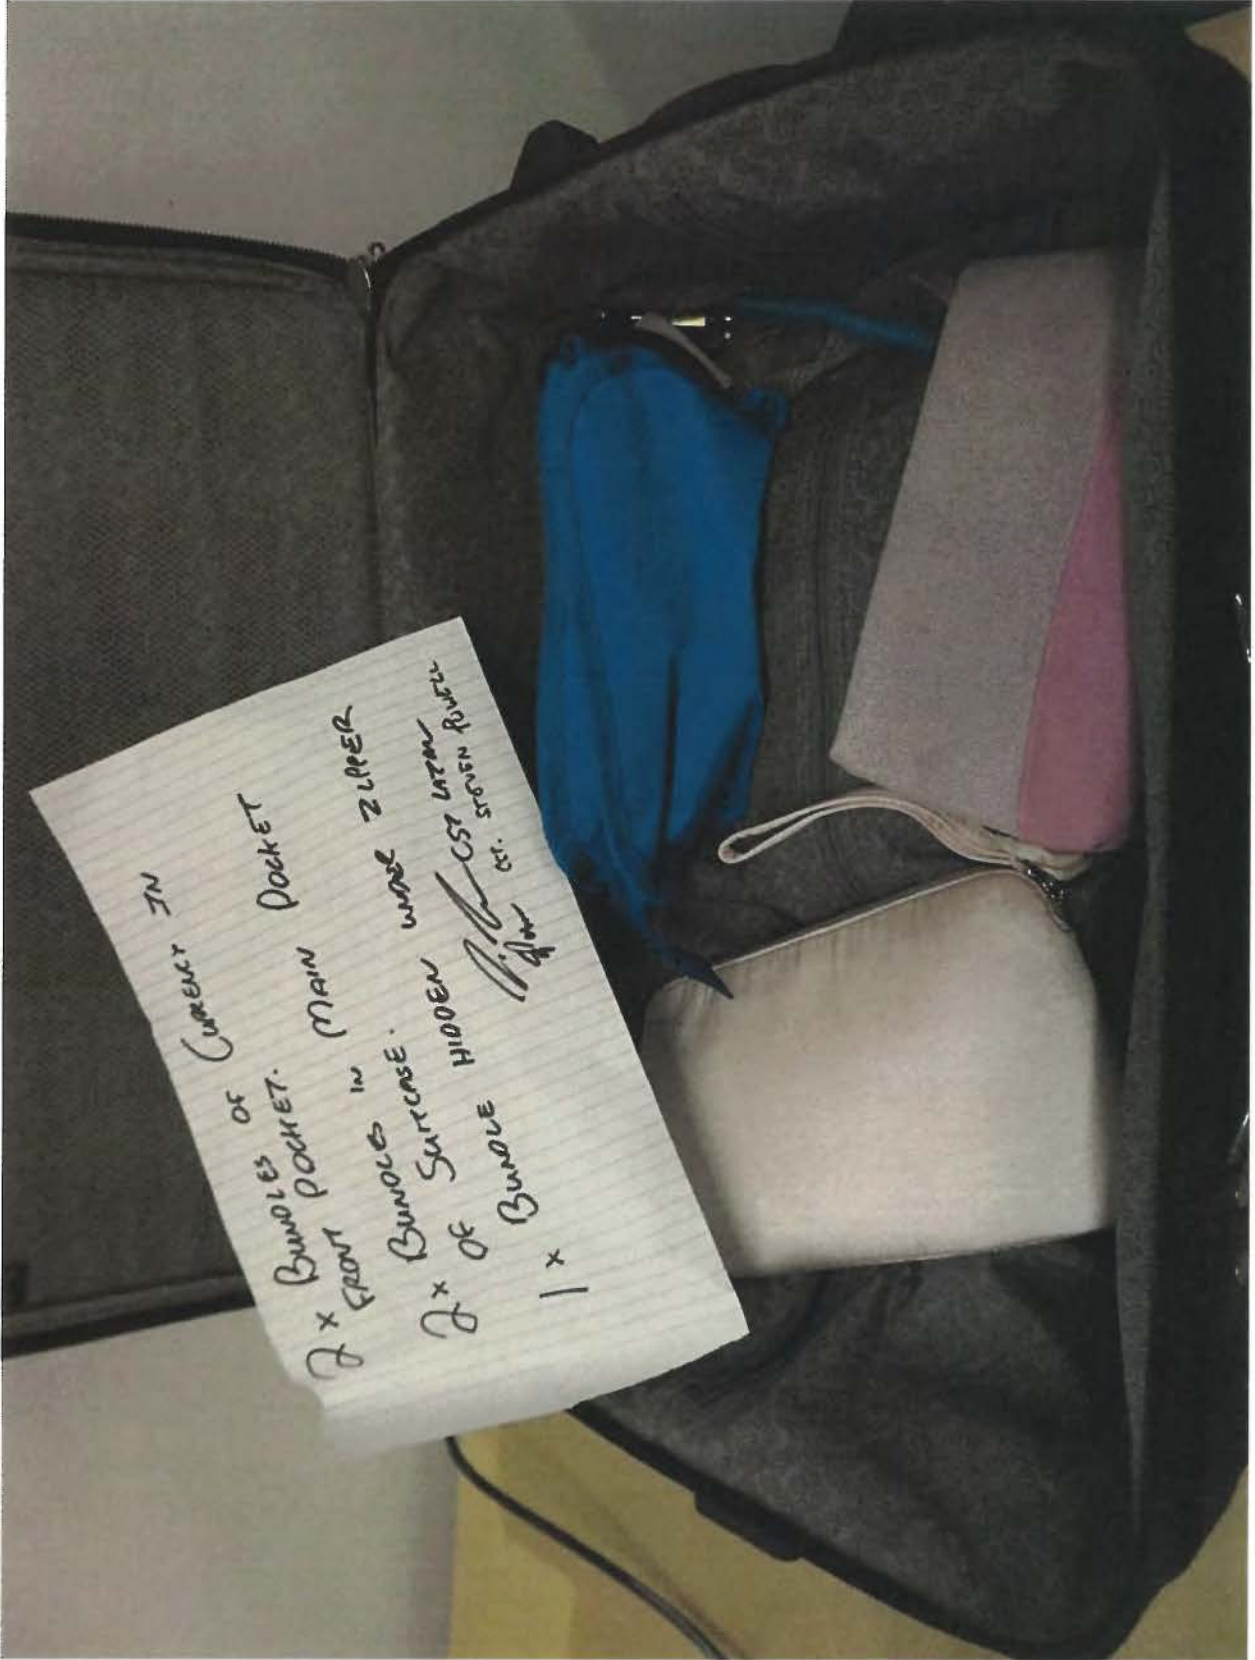 2 x BUNDLES OF CURRENCY IN
FRONT POCKET.
2 x BUNDLES IN MAIN POCKET
OF SUITCASE.
1 x BUNDLE HIDDEN UNDER ZIPPER
CST
CST. STEVEN POWELL